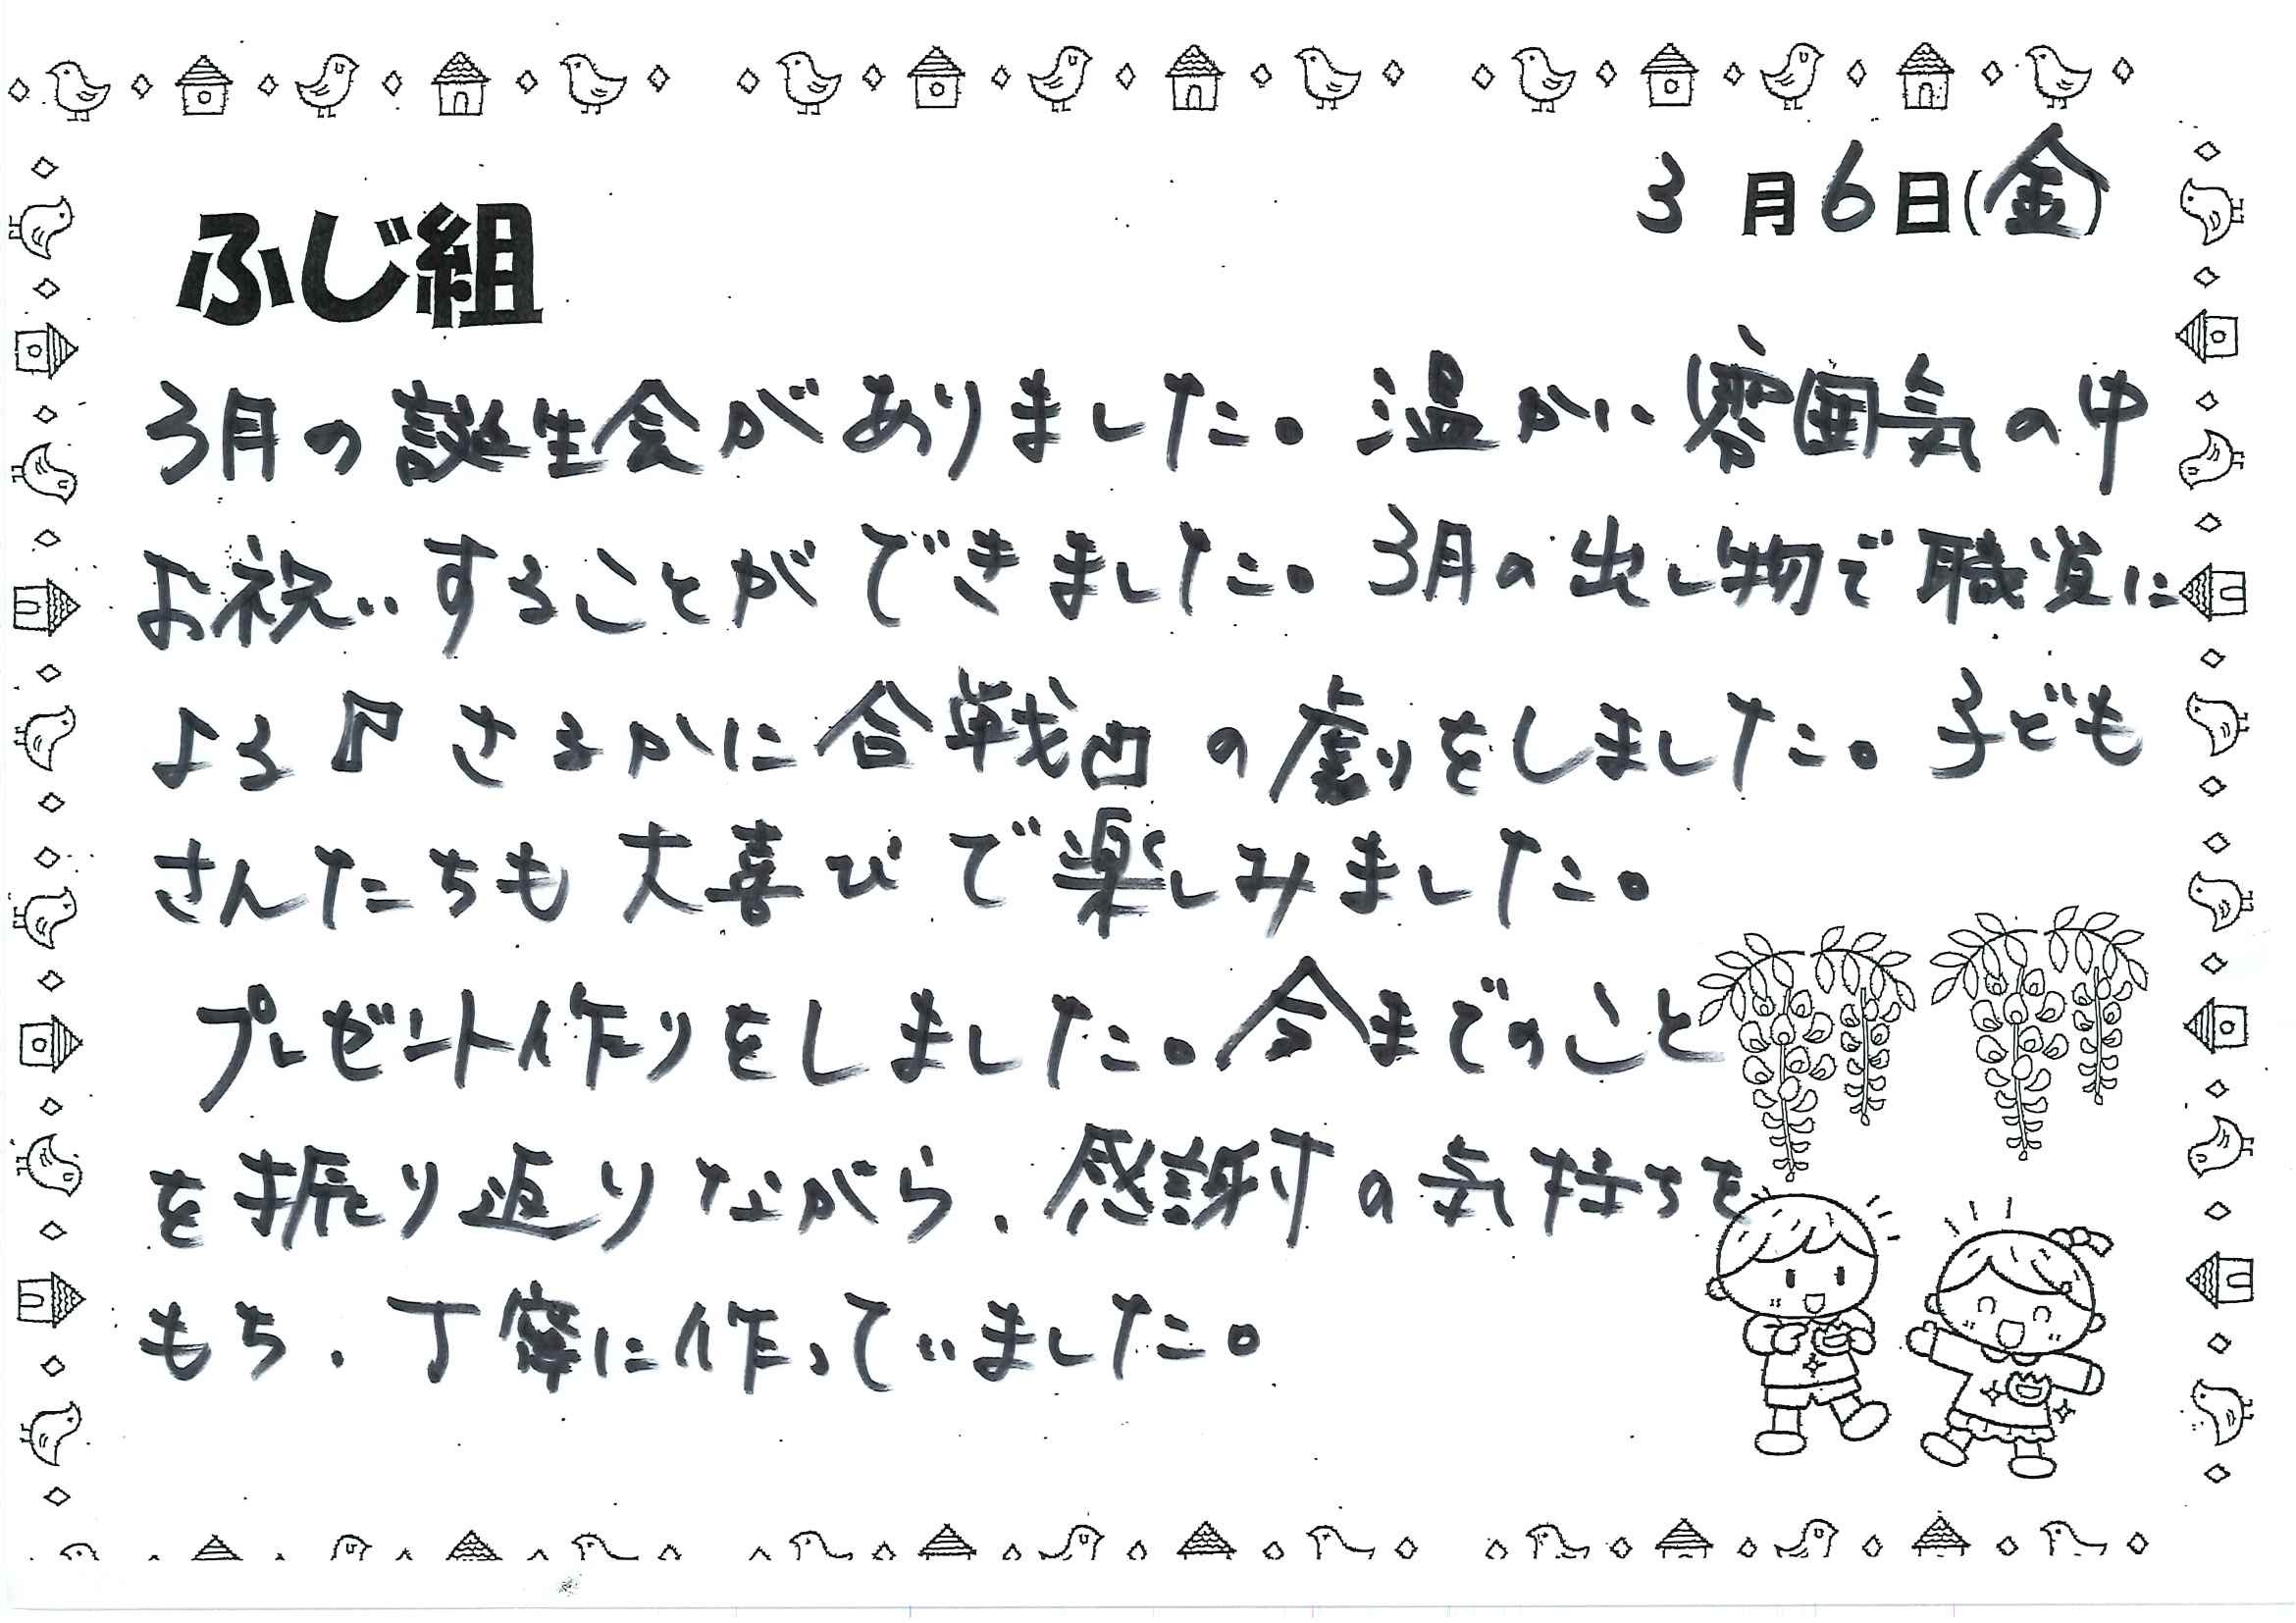 3月6日(金)
ふじ組
3月の誕生会がありました。温かい雰囲気の中
お祝いすることができました。3月の出し物で職員に
よる『さるかに合戦』の劇をしました。子ども
さんたちも大喜びで楽しみました。
プレゼント作りをしました。今までのこと
を振り返りながら、感謝の気持ちを
もち、丁寧に作っていました。